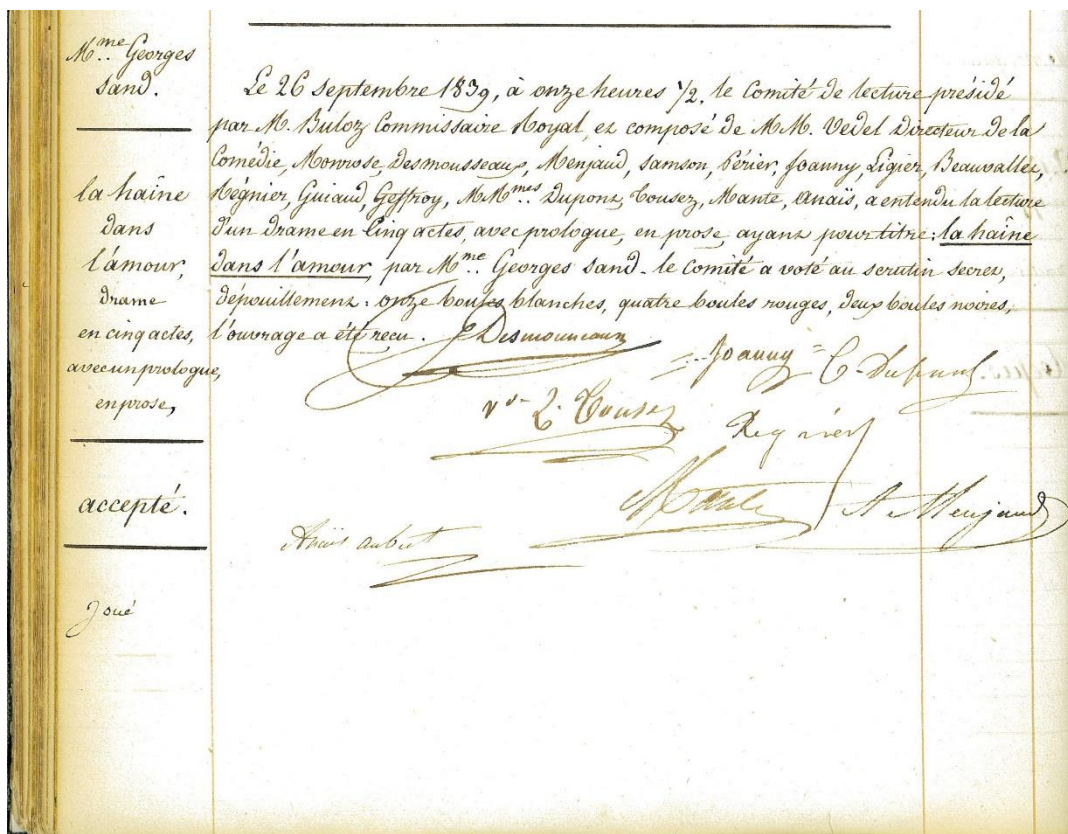 Mme.. Georges
Sand.
la haîne
dans
l'amour,
drame
en cinq actes,
avec un prologue,
en prose,
accepté.
Joué
Le 26 septembre 1839, à onze heures 1/2. le Comité de lecture présidé
par M. Buloz Commissaire Royal, et composé de MM. Vedel Directeur de la
Comédie, Monrose, Desmousseaux, Menjaud, Samson, Périer, Joanny, Ligier, Beauvallet,
Régnier, Guiaud, Geffroy, MMmes.. Dupont, Tousez, Mante, Anaïs, a entendu la lecture
d'un drame en Cinq actes, avec prologue, en prose, ayant pour titre: la haîne
dans l'amour, par Mme. Georges Sand. le Comité a voté au scrutin secret,
dépouillement: onze boules blanches, quatre boules rouges, deux boules noires,
l'ouvrage a été recu. Desmousseaux
Joanny C. Dupont
Tousez Regnier
Mante A Menjaud
Anaïs aubert